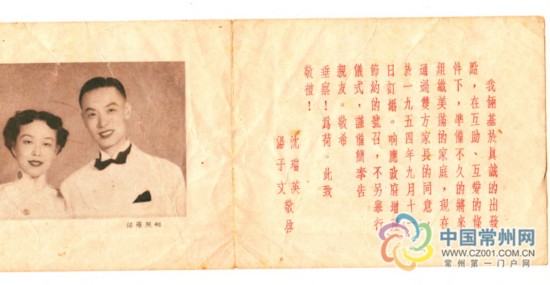 我倆基於真誠的出發
點,在互助、互愛的條
件下,準備不久的將來
組織美滿的家庭,現在
通過雙方家長的同意,
於一九五四年九月十
日訂婚。响應政府增
節約的號召,不另舉行
儀式,謹 簡奉告
親友。敬希
垂察!爲荷。此致
敬禮!
沈瑞英
湯子文 敬啟
中国常州网
WWW.CZ001.COM.CN
常州第一门户网